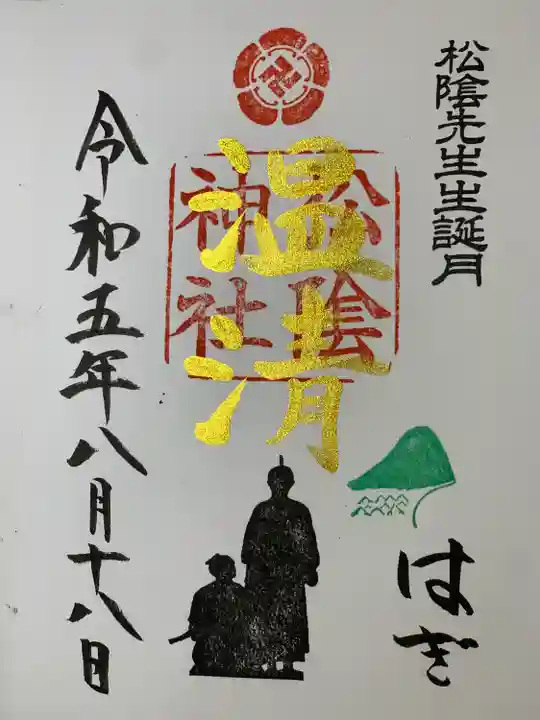 松陰先生生誕月
松陰
神社
温清
はぎ
令和五年八月十八日